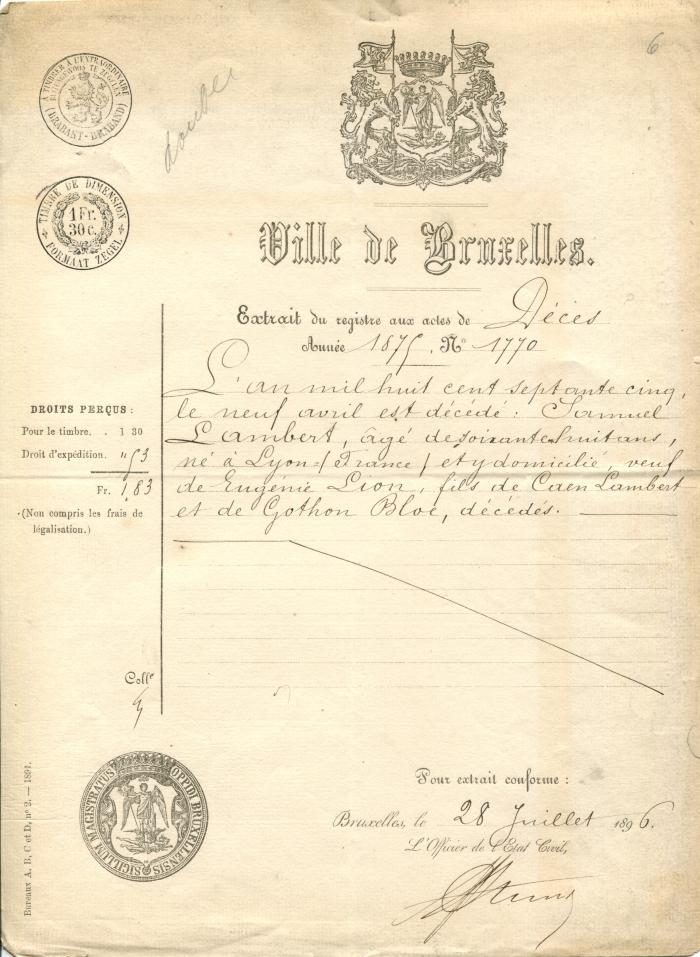 6
double
A TIMBRER A L'EXTRAORDINAIRE
BUITENGEWOON TE ZEGELEN
(BRABANT - BRABAND)
TIMBRE DE DIMENSION
1 Fr.
30 c.
FORMAAT ZEGEL
Ville de Bruxelles.
Extrait du registre aux actes de Décès
Année 1875. No 1770
L'an mil huit cent septante cinq,
le neuf avril est décédé : Samuel
Lambert, âgé de soixante-huit ans,
né à Lyon=(France) et y domicilié, veuf
de Eugénie Lion, fils de Caen Lambert
et de Gothon Bloc, décédés.
DROITS PERÇUS :
Pour le timbre. . 1 30
Droit d'expédition. " 53
Fr. 1,83
(Non compris les frais de
légalisation.)
Colle
SIGILLUM MAGISTRATUS OPPIDI BRUXELLENSIS
Bureaux A, B, C et D, no 2. — 1894.
Pour extrait conforme :
Bruxelles, le 28 Juillet 1896.
L'Officier de l'Etat Civil,